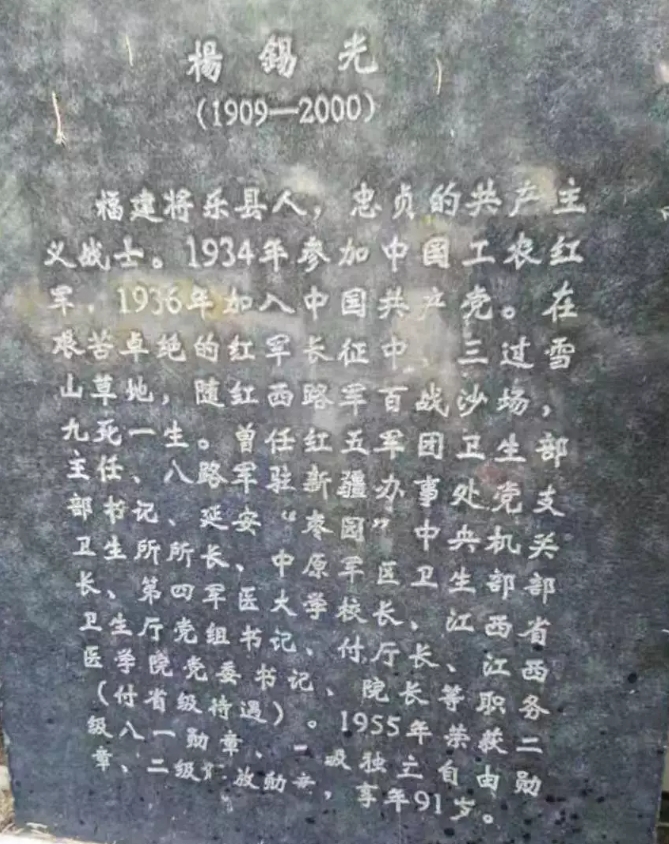 楊錫光
(1909—2000)
福建将乐县人，忠贞的共产主
义战士。1934年参加中国工农红
军，1936年加入中国共产党。在
艰苦卓绝的红军长征中、三过雪
山草地，随红西路军百战沙场，
九死一生。曾任红五军团卫生部
主任、八路军驻新疆办事处党支
部书记、延安“枣园”中央机关
卫生所所长、中原军区卫生部部
长、第四军医大学校长、江西省
卫生厅党组书记、付厅长、江西
医学院党委书记、院长等职务
(付省级待遇)。1955年荣获二
级八一勋章、一级独立自由勋
章、二级放勋章，享年91岁。